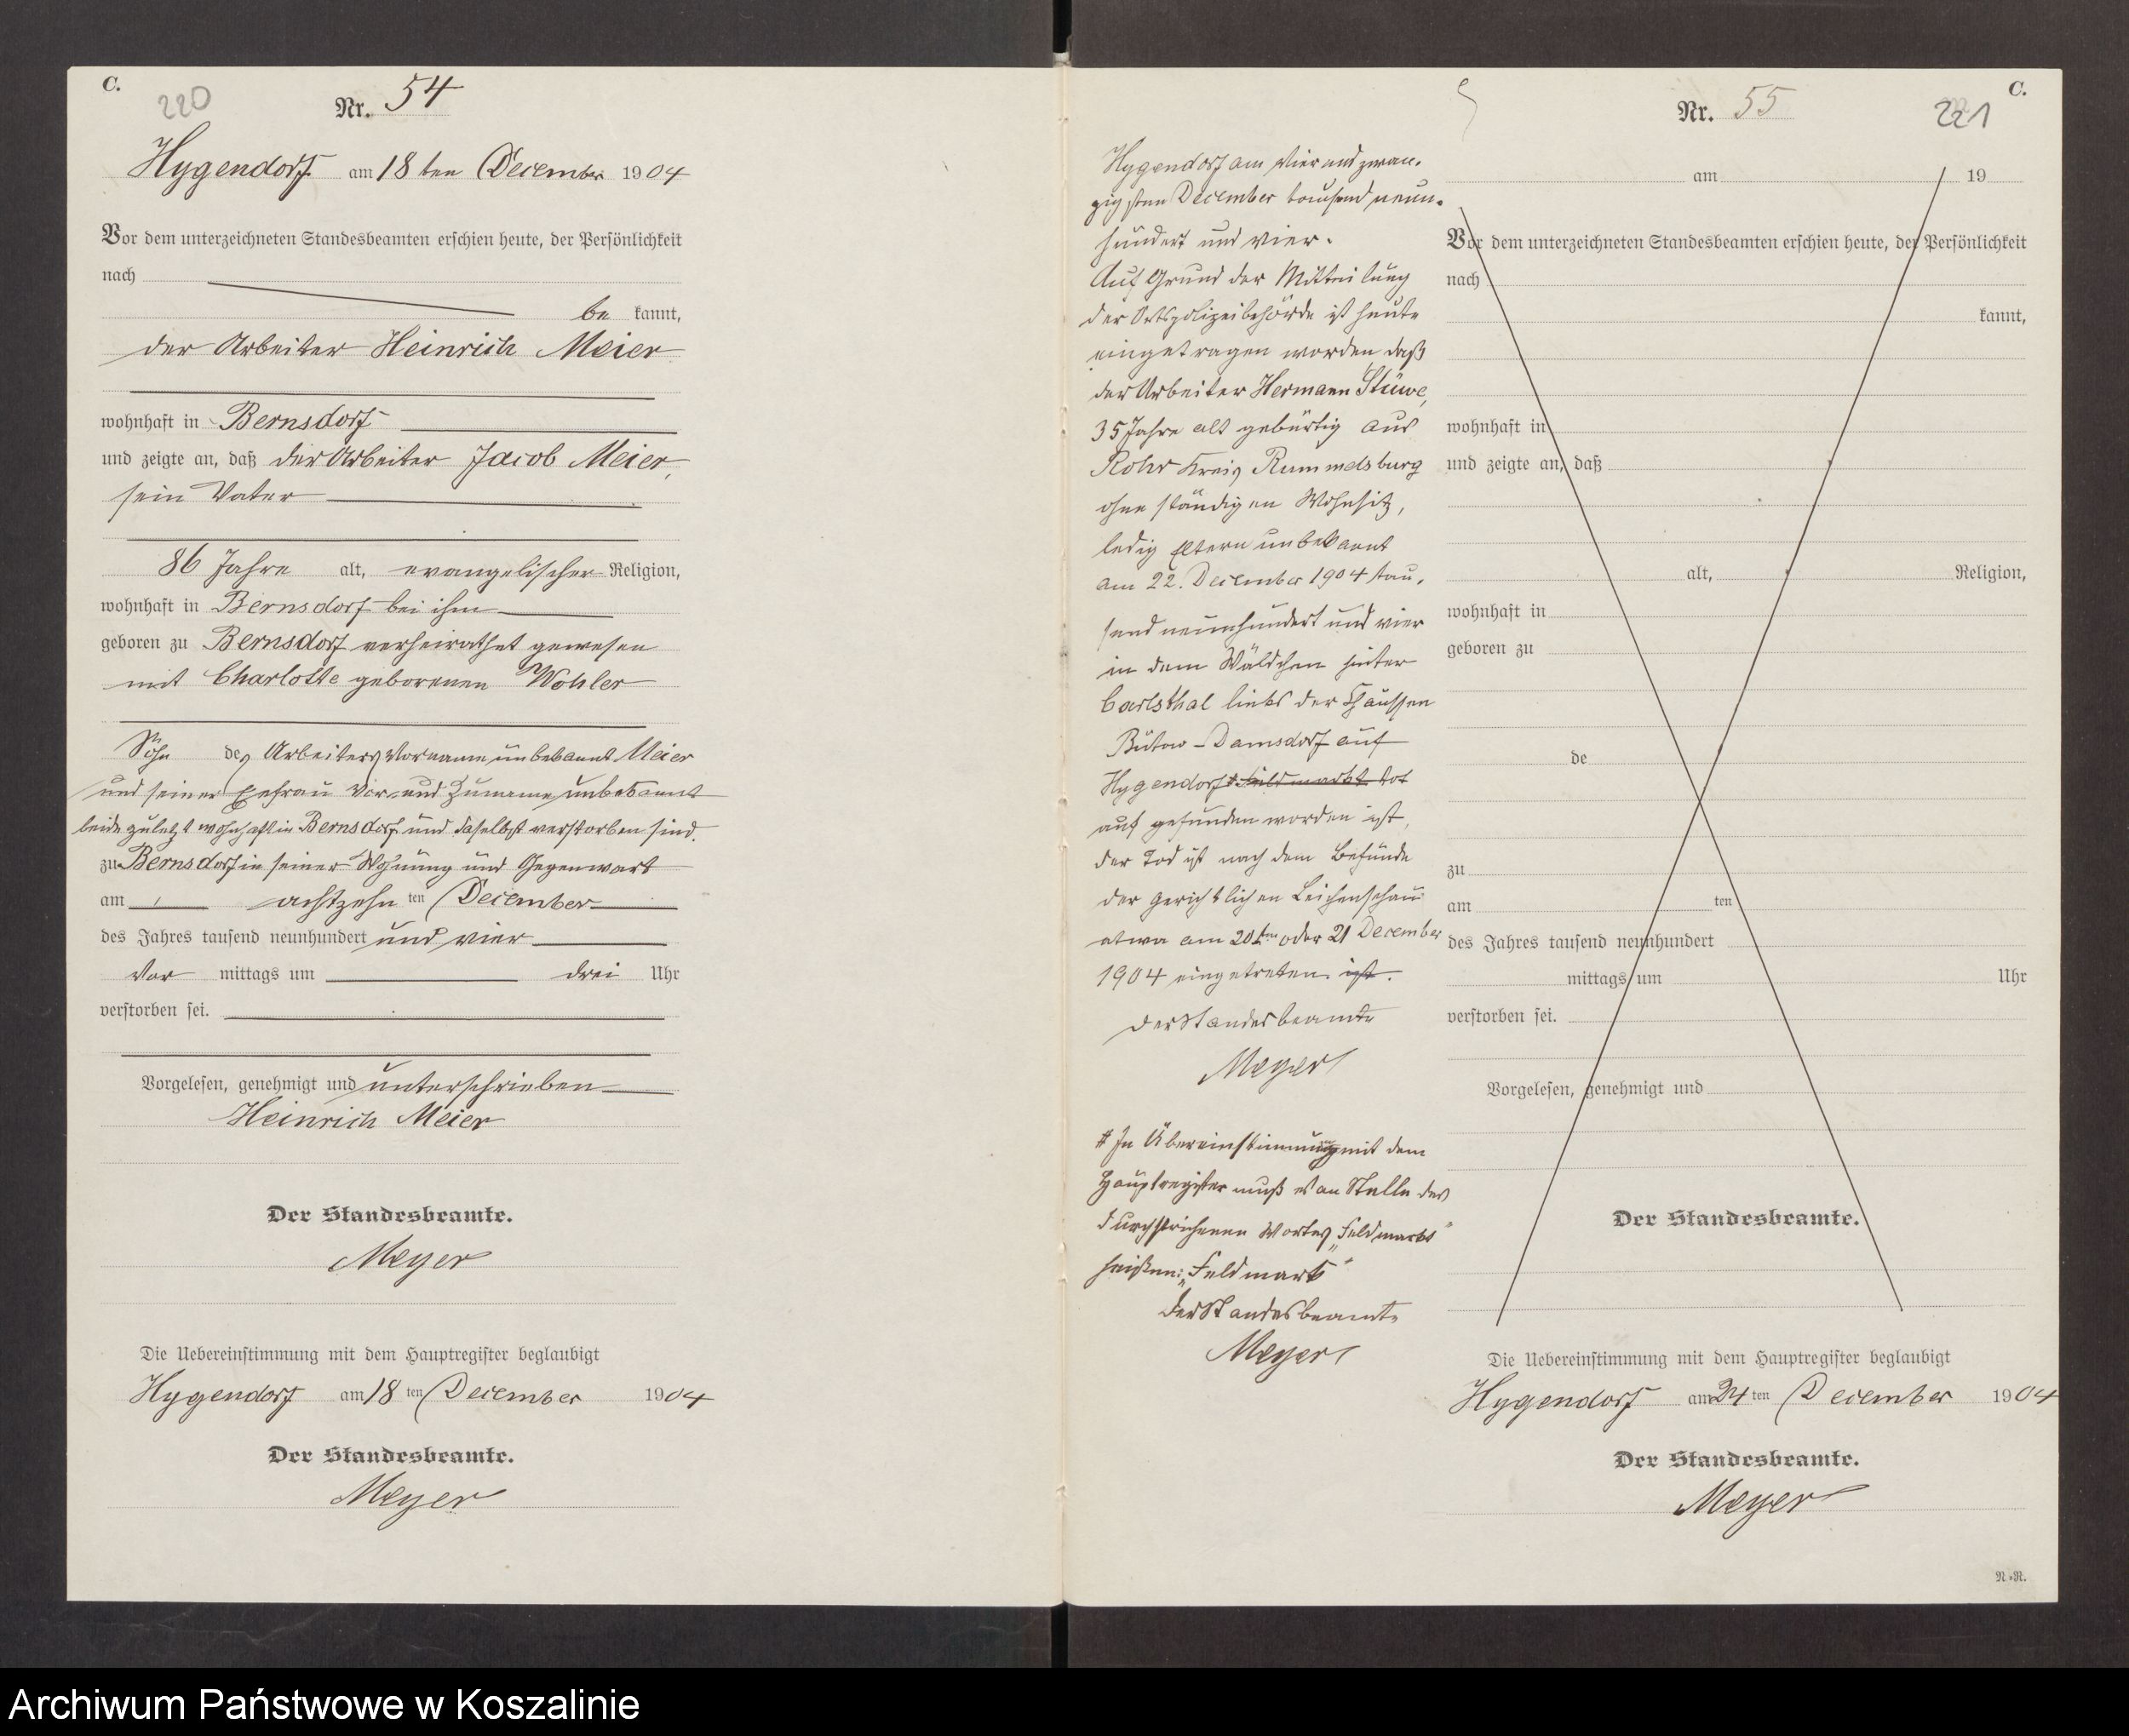 C.
220
Nr. 54
Hygendorf am 18 ten December 1904
Vor dem unterzeichneten Standesbeamten erschien heute, der Persönlichkeit
nach
be kannt,
der Arbeiter Heinrich Meier
wohnhaft in Bernsdorf
und zeigte an, daß der Arbeiter Jacob Meier,
sein Vater
86 Jahre alt, evangelischer Religion,
wohnhaft in Bernsdorf bei ihm
geboren zu Bernsdorf verheirathet gewesen
mit Charlotte geborenen Wohler
Sohn des Arbeiters Vorname unbekannt Meier
und seiner Ehefrau Vor- und Zuname unbekannt
beide zuletzt wohnhaft in Bernsdorf und daselbst verstorben sind.
zu Bernsdorf in seiner Wohnung und Gegenwart
am achtzehn ten December
des Jahres tausend neunhundert und vier
Vor mittags um drei Uhr
verstorben sei.
Vorgelesen, genehmigt und unterschrieben
Heinrich Meier
Der Standesbeamte.
Meyer
Die Uebereinstimmung mit dem Hauptregister beglaubigt
Hygendorf am 18 ten December 1904
Der Standesbeamte.
Meyer
C.
221
Nr. 55
Hygendorf am vier und zwan-
zigsten December tausend neun-
hundert und vier.
Auf Grund der Mitteilung
der Ortspolizeibehörde ist heute
eingetragen worden daß
der Arbeiter Hermann Stüwe,
35 Jahre alt gebürtig aus
Rohr Kreis Rummelsburg
ohne ständigen Wohnsitz,
ledig Eltern unbekannt
am 22. December 1904 tau-
send neunhundert und vier
in dem Wäldchen hinter
Carlsthal links der Chaussen
Bütow-Damsdorf auf
Hygendorf # Feldmarkt tot
aufgefunden worden ist,
der Tod ist nach dem Befunde
der gerichtlichen Leichenschau
etwa am 20ten oder 21 December
1904 eingetreten ist.
Der Standesbeamte
Meyer
# In Übereinstimmung mit dem
Hauptregister muß es an Stelle des
durchstrichenen Wortes „Feldmarkt"
heißen: „Feldmark"
Der Standesbeamte
Meyer
am 19
Vor dem unterzeichneten Standesbeamten erschien heute, der Persönlichkeit
nach
kannt,
wohnhaft in
und zeigte an, daß
alt, Religion,
wohnhaft in
geboren zu
de
zu
am ten
des Jahres tausend neunhundert
mittags um Uhr
verstorben sei.
Vorgelesen, genehmigt und
Der Standesbeamte.
Die Uebereinstimmung mit dem Hauptregister beglaubigt
Hygendorf am 24 ten December 1904
Der Standesbeamte.
Meyer
N.-R.
Archiwum Państwowe w Koszalinie